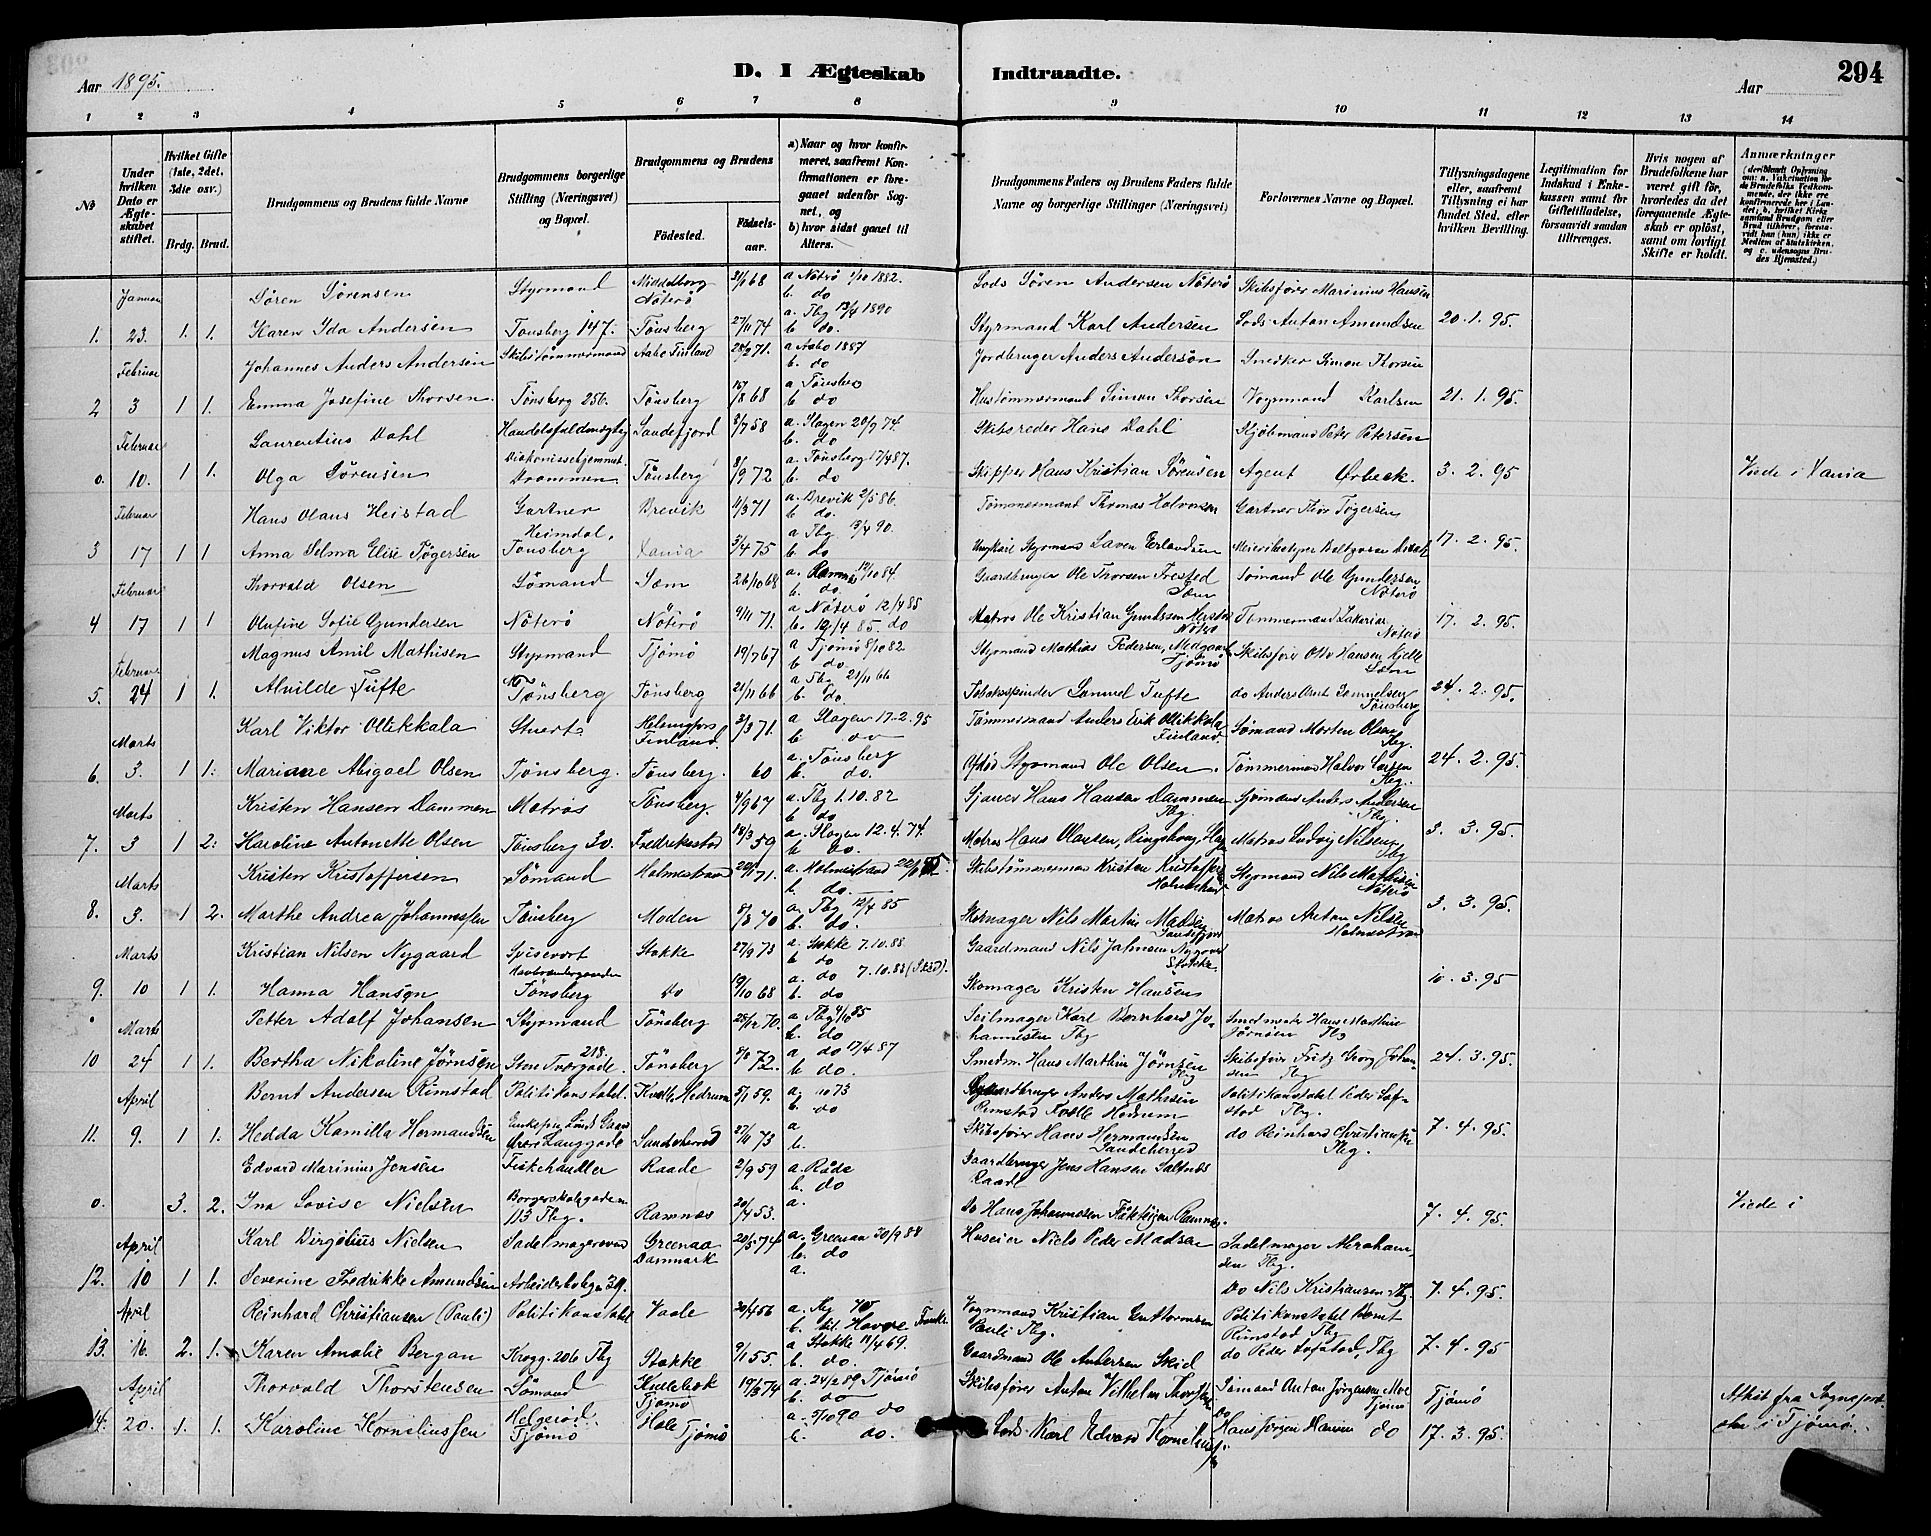 Aar 1895.
D. I Ægteskab Indtraadte.
Aar
294
1 2 3 4 5 6 7 8 9 10 11 12 13 14
No
Under hvilken Dato er Ægteskabet stiftet.
Hvilket Gifte (1ste, 2det, 3die osv.)
Brdg. Brud.
Brudgommens og Brudens fulde Navne
Brudgommens borgerlige Stilling (Næringsvei) og Bopæl.
Brudgommens og Brudens
Fødested. Fødselsaar.
a) Naar og hvor konfirmeret, saafremt Konfirmationen er foregaaet udenfor Sognet, og
b) hvor sidst gaaet til Alters.
Brudgommens Faders og Brudens Faders fulde Navne og borgerlige Stillinger (Næringsvei)
Forlovernes Navne og Bopæl.
Tillysningsdagene eller, saafremt Tillysning ei har fundet Sted, efter hvilken Bevilling.
Legitimation for Indskud i Enkekassen samt for Giftetilladelse, forsaavidt saadan tiltrænges.
Hvis nogen af Brudefolkene har været gift før, hvorledes da det foregaaende Ægteskab er opløst, samt om lovligt Skifte er holdt.
Anmærkninger
Januar Søren Sørensen Styrmand Middelborg Nøterö 31/1 68 a Nøterö 1/10 1882. b. do Lods Sören Andersen Nøterö Skibsfører Marinius Hansen
1. 23. 1. 1. Karen Ida Andersen Tønsberg 147. Tønsberg 27/11 74 a. Tbg 13/4 1890 b do. Styrmand Karl Andersen Lods Anton Amundsen 20.1.95.
Februar Johannes Anders Andersön Skibstømmermand Aabo Finland 28/2 71. a Aabo 1887 b. do Jordbruger Anders Andersön Snedker Simon Thorsen
2 3 1 1. Emma Josefine Thorsen. Tønsberg 256. Tønsberg 16/8 68 a Tønsberg b do Hustømmermand Simon Thorsen Vognmand Karlsen 21.1.95.
Februar Laurentius Dahl Handelsfuldmægtig Sandefjord 8/7 58 a. Slagen 20/9 74. b. do Skibsreder Hans Dahl Kjøbmand Peter Petersen
0. 10. 1 1. Olga Sørensen Diakonissehjemmet Drammen Tønsberg 8/9 72 a. Tønsberg 17/4 87. b. do Skipper Hans Kristian Sørensen Agent Ørbeck. 3.2.95 Viede i Xania
Februar Hans Olaus Heistad Gartner Brevik 11/3 71 a. Brevik 2/5 86. b do. Tømmermand Thomas Halvorsen Gartner Thor Tøgersen
3 17 1 1 Anna Selma Elise Tøgersen Heimdal, Tønsberg Xania 3/4 75 a Tbg 13/4 90. b. do Styrmand Laven Erlandsen 17.2.95.
Februar Thorvald Olsen Sømand Sem 26/10 68 a. Ramnes 12/10 84. b. do. Gaardbruger Ole Thorsen Frested Sem Sømand Ole Gundersen Nøterö
4 17 1 1 Olufine Sofie Gundersen Nøterö Nøterö 9/11 71. a Nøterö 12/4 85 b. 12/4 85. do Matros Ole Kristian Gundersen Nøterö Tømmermand Zakarias Nøterö 17.2.95.
Februar Magnus Amil Mathisen Styrmand Tjømö 19/7 67 a Tjømö 8/10 82 b do Styrmand Mathias Pedersen, Medgaard Tjømö Skibsfører Otto Hansen Kjelle Sem
5. 24 1 1. Alvilde Tufte Tønsberg Tønsberg 21/11 66 a Tbg 21/11 66 b. do. Tobakspinder Samuel Tufte do Anders Arnt Samuelsen Tønsberg 24.2.95.
Marts Karl Viktor Ollikkala Stuert Helsingfors Finland. 3/3 71. a Slagen 17.2.95 b do Tømmermand Anders Erik Ollikkala Finland. Sømand Morten Olsen Tbg.
6. 3. 1 1. Mariane Abigael Olsen Tønsberg. Tønsberg. 60 a. Tønsberg b. do. Afdød Styrmand Ole Olsen. Tømmermand Halvor Larsen Tbg. 24.2.95.
Marts Kristen Hansen Dammen Matros Tønsberg. 4/9 67 a. Tbg 1.10.82 b do Sjauer Hans Hansen Dammen Tbg. Sjømand Anders Andersen Tbg.
7. 3 1 2. Karoline Antonette Olsen Tønsberg 30. Fredriksstad 18/3 59 a. Slagen 12.4.74. b do. Matros Hans Olausen, Ringshaug, Slagen Matros Ludvig Nilsen Tbg 3.3.95.
Marts Kristen Kristoffersen Sømand Holmestrand 20/1 71. a. Holmestrand b. do. Skibstømmermand Kristen Kristoffersen Holmestrand Styrmand Nils Mathisen Nøterö
8. 3. 1 2. Marthe Andrea Johannessen Tønsberg Moden 8/8 70 a. Tbg 12/4 85 b. do. Skomager Nils Martin Madsen Sandefjord Matros Anton Nilsen Holmestrand 3.3.95.
Marts Kristian Nilsen Nygaard Spisevert Stokke 27/9 73 a. Stokke 7.10.88 b do Gaardmand Nils Jahnsen Nygaard Stokke.
9. 10 1 1. Hanna Hansen Tønsberg do 19/10 68 a. do 7.10.83 (Skid). b. do Skomager Kristen Hansen 10.3.95
Marts Petter Adolf Johansen Styrmand Tønsberg 25/12 70. a Tbg 4/10 85 b. do. Seilmager Karl Bernhard Johannesen Tbg Smedmester Hans Marthin Jørnsen Tbg
10 24 1 1. Bertha Nikoline Jørnsen Store Tværgade. 218. Tønsberg 9/8 72. a do 17/4 87 b do. Smedm. Hans Marthin Jörnsen Tbg Skibsfører Fritz Georg Johansen Tbg 24.3.95.
April Bernt Andersen Rimstad Politikonstabel. Kvelle Hedrum 5/1 59. a. 10 73 b. do Gaardbruger Anders Mathisen Rimstad Kvelle Hedrum Politikonstabel Peder Lofstad Tbg.
11. 9. 1 1. Hedda Kamilla Hermandsen Enkefru Lunds Gaard Øvre Langgade Sandeherred 27/11 73 a b. Skibsfører Hans Hermandsen Sandeherred do Reinhard Christiansen Tbg. 7.4.95.
Edvard Marinius Jensen Fiskehandler Raade 2/9 59 a. Råde b. do Gaardbruger Jens Hansen Saltnes Raade
0. 3. 2. Ina Lovise Nielsen Borgerskolegaden 113 Tbg. Ramnæs 20/4 53. a. Do Hans Johannesen Ramnæs. 7.4.95. Viede i
April Karl Birgelius Nielsen Sadelmagersvend Greenaa Danmark 20/5 74 a. Greenaa 30/9 88 b. do Huseier Niels Peder Madsen Sadelmager Abrahamsen Tbg.
12. 10 1 1. Severine Fredrikke Amundsen Arbeiderbolig 39. a. Do Nils Kristiansen Tbg 7.4.95.
April Reinhard Christiansen (Pauli) Politikonstabel Vaale 20/4 56 a. Tbg b. til Havre Vognmand Kristian Guttormsen Pauli Tbg. Politikonstabel Bernt Rimstad Tbg
13. 16. 2. 1. Karen Amalie Bergan Krogg. 206 Tbg Stokke 9/1 55. a Stokke 11/4 69. b. do. Gaardmand Ole Andersen Skid do Peder Lofstad, Tbg 7.4.95
April Thorvald Thorstensen Sømand Kulebok Tjømö 19/3 74 a. 24/2 89 Tjømö b. do Skibsfører Anton Vilhelm Thorstensen Sømand Anton Jørgensen Moe Tjømö Tjømö Attest fra Sognepresten i Tjømö.
14. 20. 1. 1. Karoline Korneliussen Helgerød. Tjømö Hole Tjømö a. 5/10 90 do b. do. Lods Karl Edvard Korneliussen Do Hans Jørgen Hansen do 17.3.95.